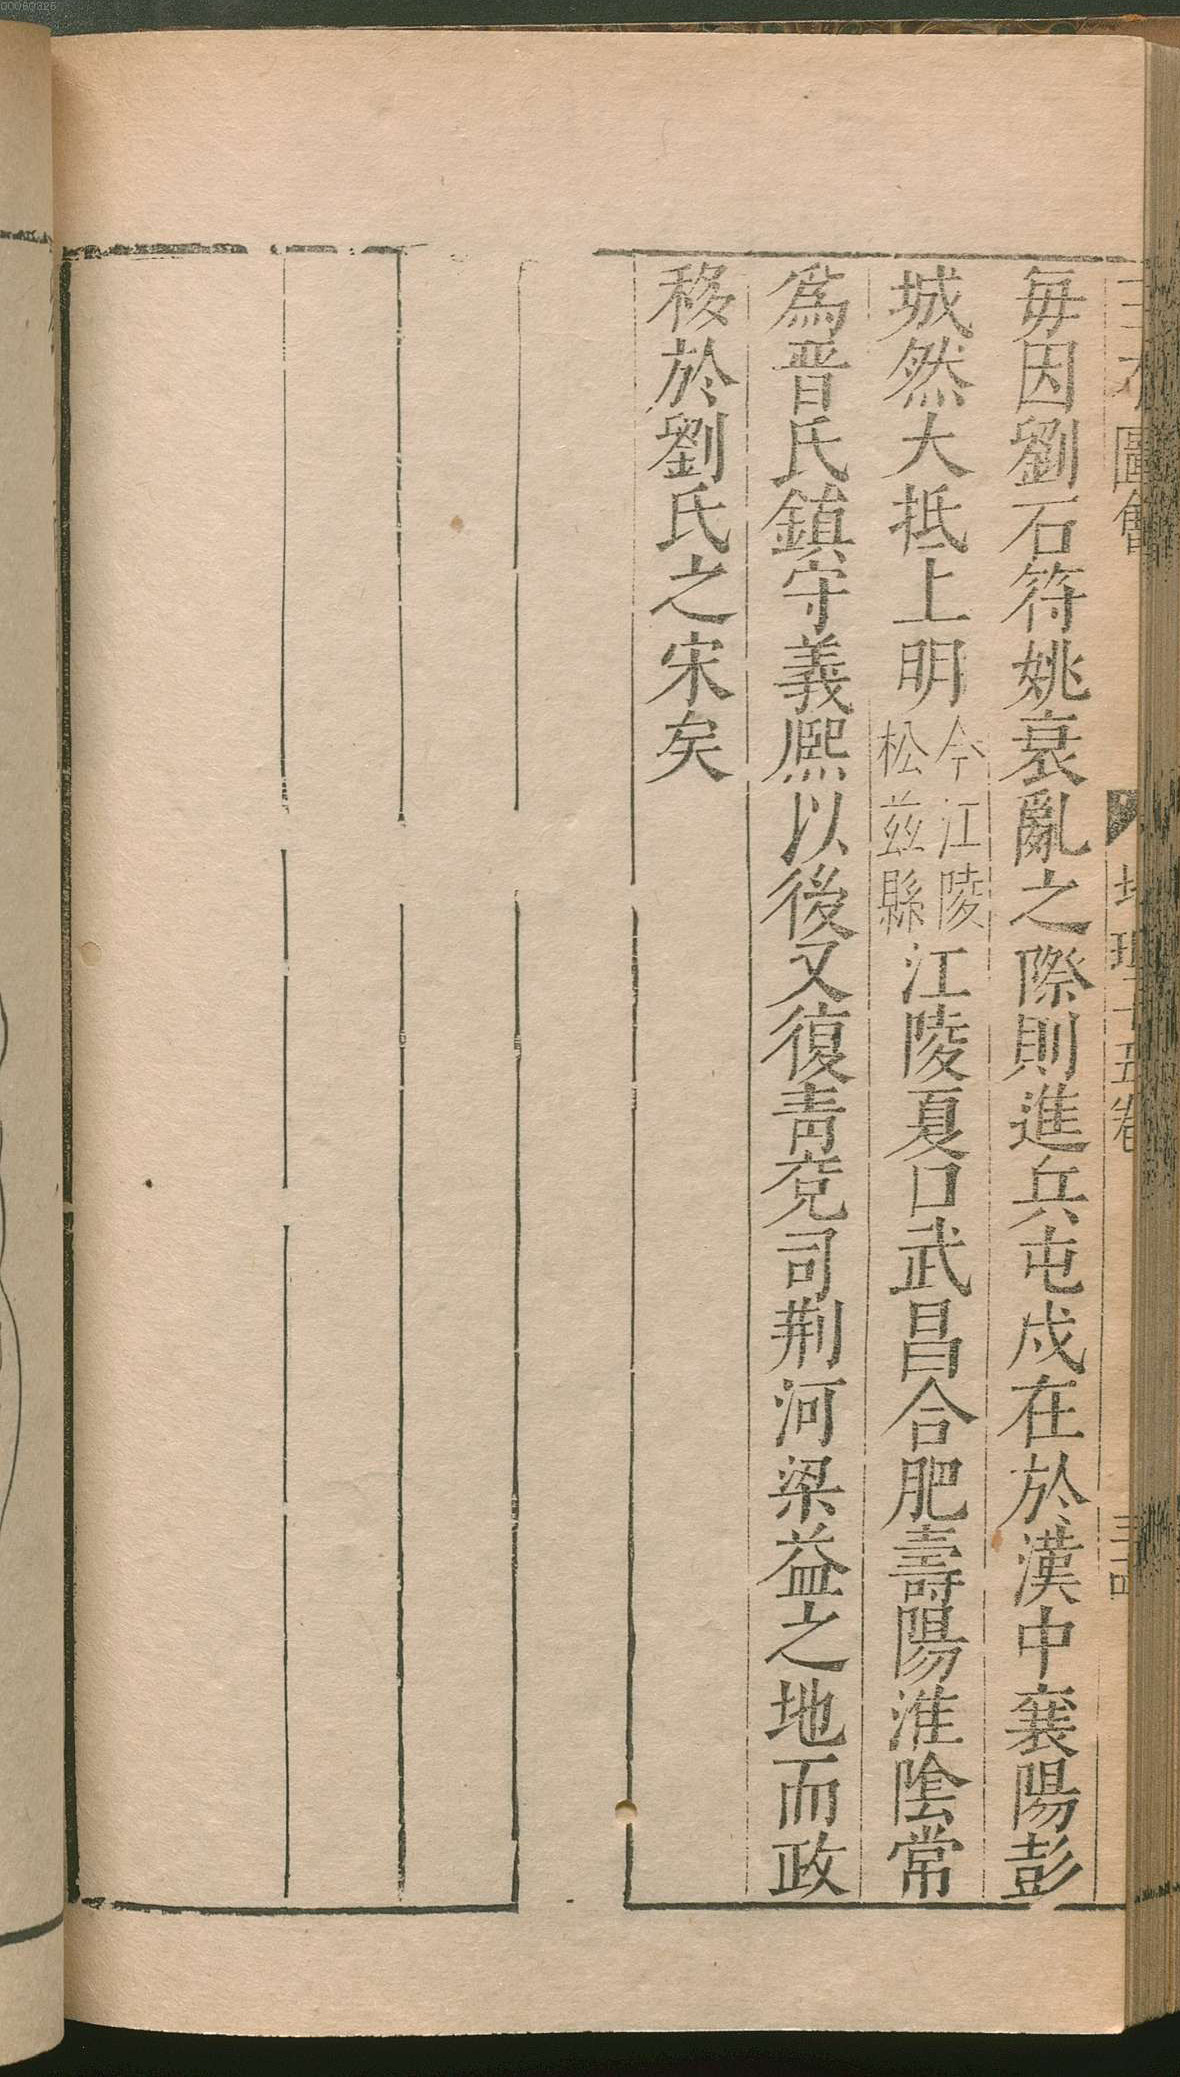 毎因劉石符姚衰亂之際則進兵屯戍在於漢中襄陽彭
城然大抵上明今江陵松兹縣江陵夏口武昌合肥壽陽淮陰常
爲晋氏鎮守義熈以後又復靑兖司荆河梁益之地而政
移於劉氏之宋矣
圖會
00060326